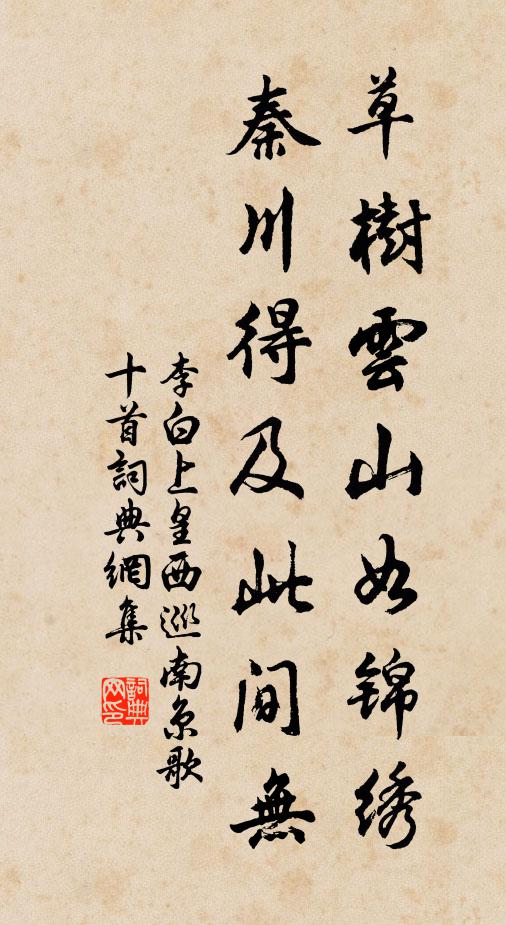 草樹雲山如錦绣
秦川得及此间無
李白上皇西巡南京歌
十首詞典網集
詞典
网印